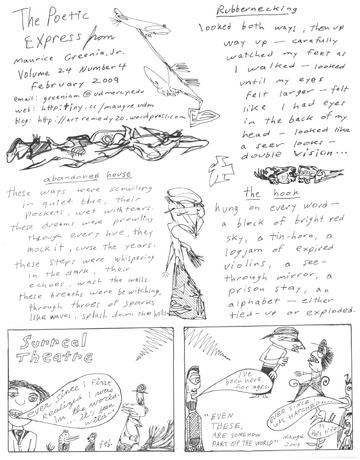 The Poetic
Express from
Maurice Greenia, Jr.
Volume 24 Number 4
February 2009
email: greeniam@udmercy.edu
web: http:tiny.cc/maugre udm
blog: http://artremedy20.wordpress.com
abandoned house
these ways were scowling
in quiet blue, their
pockets, wet with tears.
these dreams were prowling
through every hue, they
mock it, curse the years.
these steps were whispering
in the dark, their
echoes, wash the walls.
these breaths were bewitching
through throes of sparks,
like waves, splash down the halls.
Rubbernecking
looked both ways, then up
way up - carefully
watched my feet as
I walked - looked
until my eyes
felt larger - felt
like I had eyes
in the back of my
head - looked like
a seer looks -
double vision...
the hook
hung on every word -
a block of bright red
sky, a tin-horn, a
logjam of expired
violins, a see-
through mirror, a
prison stay, an
alphabet - either
tied-up or exploded.
Surreal
Theatre
ever since I first
realized I was
in the world.
... it's been
wild...
feb
I've
been here
for ages.
ever since I
was hatched
this life
"EVEN
THESE,
ARE SOMEHOW
PART OF THE WORLD"
maugre
2009